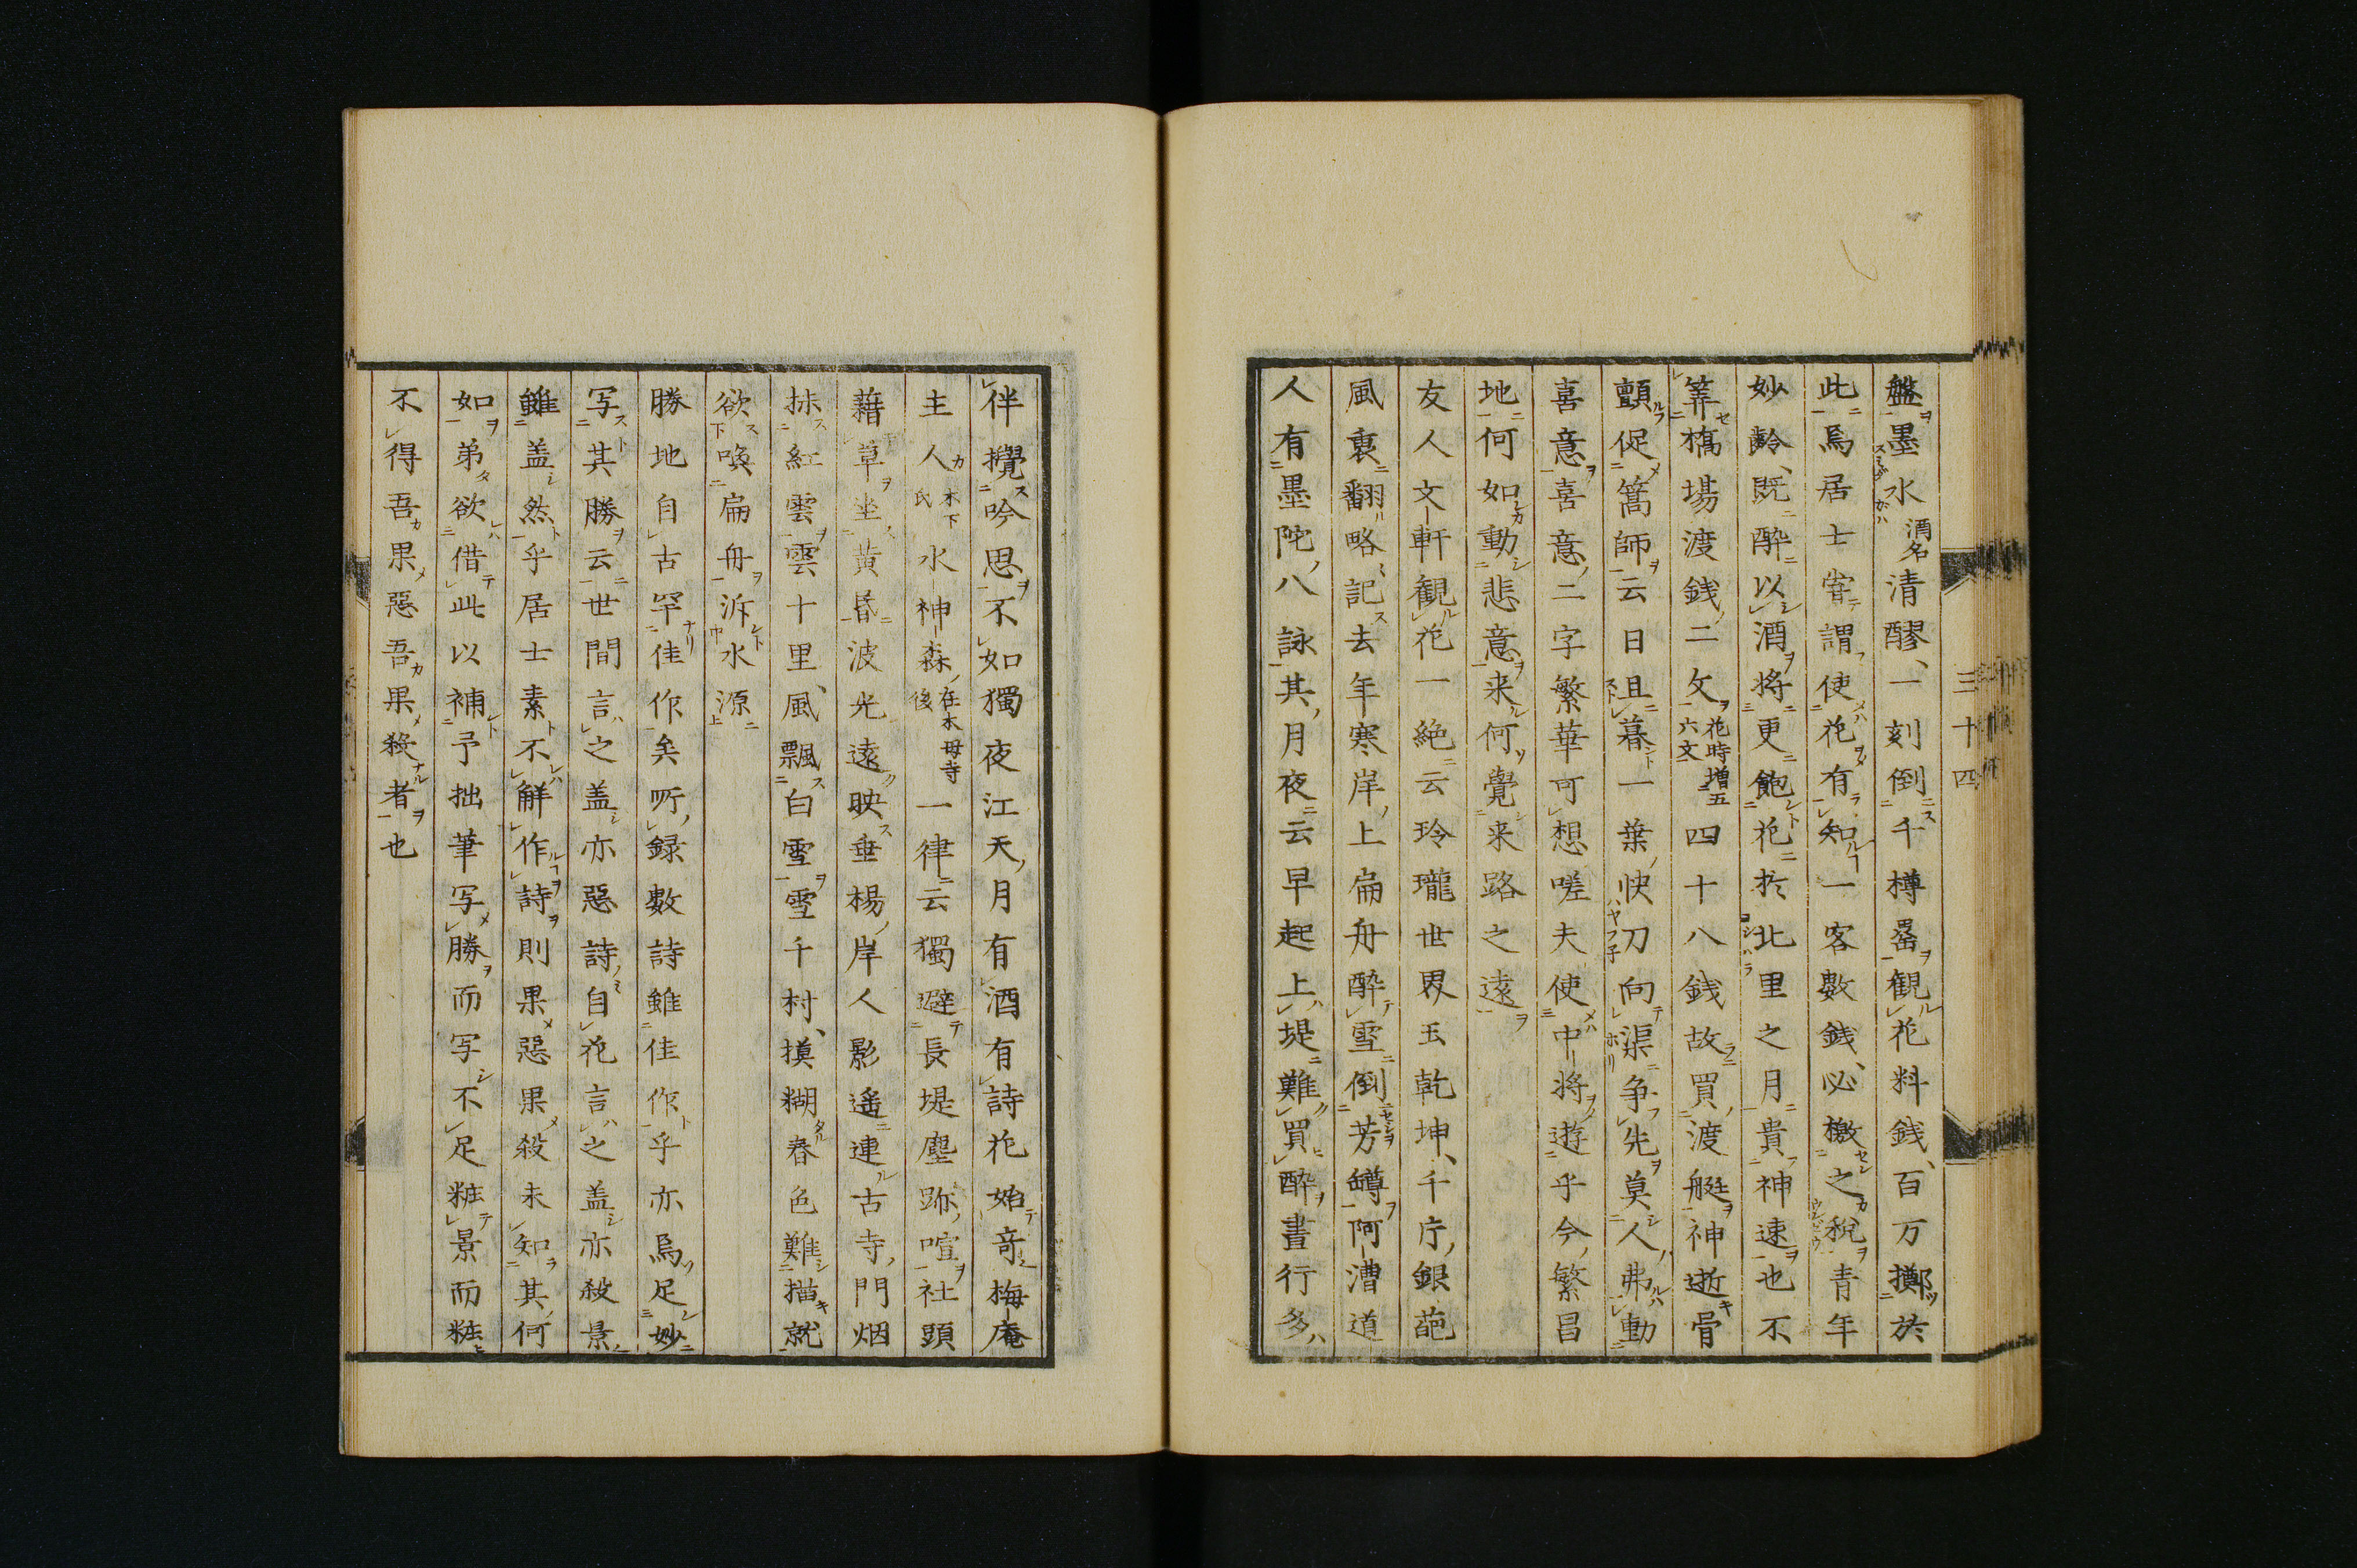 盤墨水酒名清醪、一刻倒千樽罍観花料銭、百万擲於
此焉居士甞謂使花有知一客數銭、必檄之税青年
妙齢、既酔以酒将更飽花於北里之月貴神速也不
筭槗場渡銭二文花時増五六文四十八銭故買渡艇神逝骨
顫促篙師云日且暮一葉快刀向渠争先莫人弗動
喜意喜意二字繁華可想嗟夫使中将遊乎今繁昌
地何如動悲意来何覺来路之遠
友人文軒観花一絶云玲瓏世界玉乾坤、千庁銀葩
風裏翻略記去年寒岸上扁舟酔雪倒芳罇阿漕道
人有墨陀八詠其月夜云早起上堤難買酔晝行多
三十四
伴攪吟思不如獨夜江天月有酒有詩花始竒梅庵
主人木下氏水神森在木母寺後一律云獨避長堤塵跡喧社頭
藉草坐黄昏波光遠映垂楊岸人影遥連古寺門烟
抹紅雲雲十里、風飄白雪雪千村、摸糊春色難描就
欲喚扁舟泝水源
勝地自古罕佳作矣所録數詩雖佳作乎亦焉足妙
写其勝云世間言之盖亦惡詩自花言之盖亦殺景
雖盖然乎居士素不觧作詩則果惡果殺未知其何
如弟欲借此以補予拙筆写勝而写不足粧景而粧
不得吾果惡吾果殺者也